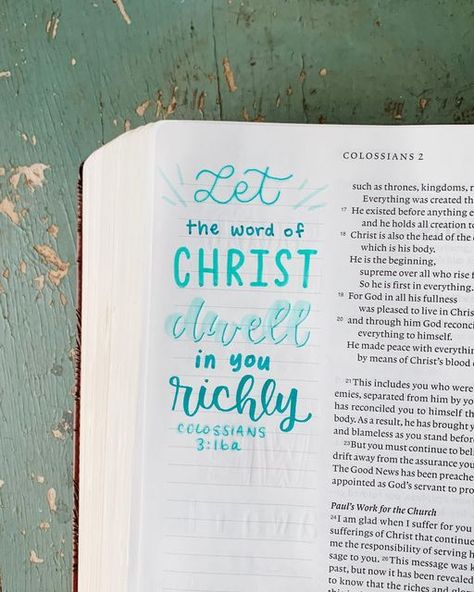 Let
the word of
CHRIST
dwell
in you
richly
COLOSSIANS
3:16a
COLOSSIANS 2
such as thrones, kingdoms, r
Everything was created th
17 He existed before anything e
and he holds all creation to
18 Christ is also the head of the
which is his body.
He is the beginning,
supreme over all who rise f
So he is first in everything.
19 For God in all his fullness
was pleased to live in Christ
20 and through him God reconc
everything to himself.
He made peace with everything
by means of Christ's blood
21 This includes you who were
emies, separated from him by yo
has reconciled you to himself th
body. As a result, he has brought y
and blameless as you stand before
23 But you must continue to beli
drift away from the assurance you
The Good News has been preached
appointed as God's servant to pro
Paul's Work for the Church
24 I am glad when I suffer for you
sufferings of Christ that continue
me the responsibility of serving h
sage to you. 26 This message was k
past, but now it has been revealed
to know that the riches and glor